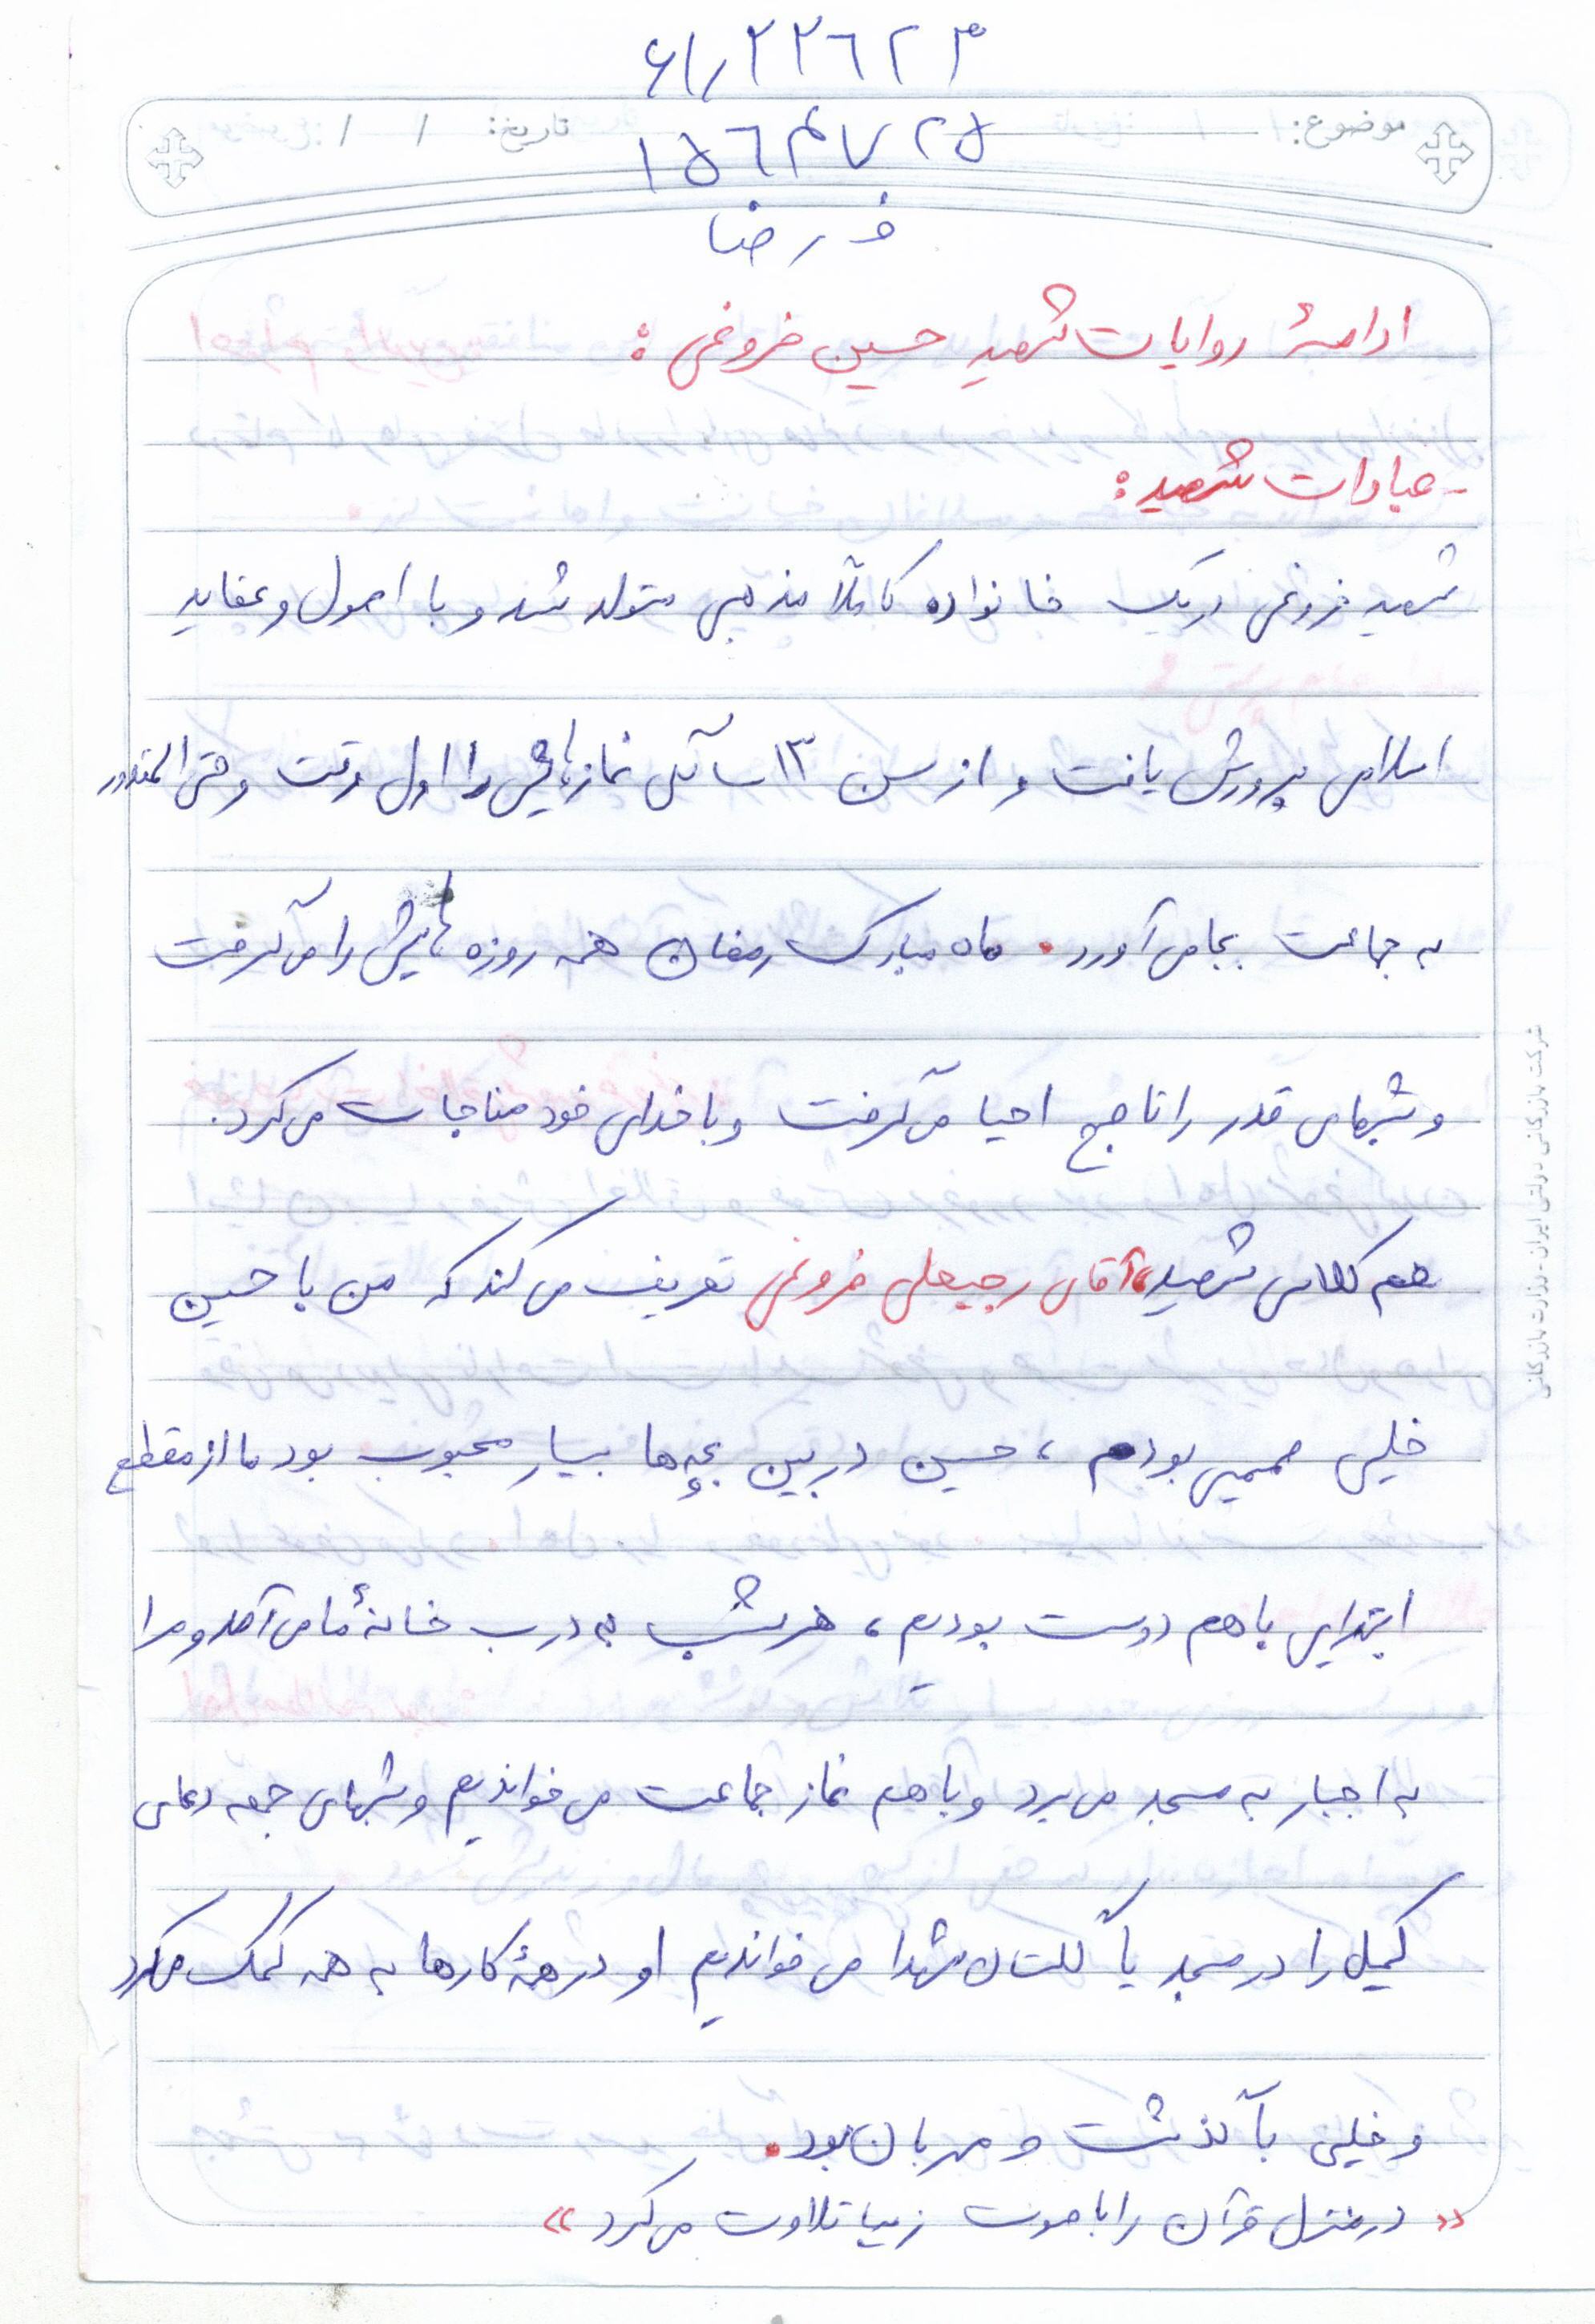 ۶۱٫۲۲۶۲۳
موضوع: تاریخ: / /
۱۵۶۴۷۲۵
ف رضا
ادامهٔ روایات شهید حسین فروغی :
- عبادات شهید :
شهید فروغی در یک خانواده کاملاً مذهبی متولد شد و با اصول و عقاید
اسلامی پرورش یافت و از سن ۱۳ سالگی نمازهایش را اول وقت و حتی المقدور
به جماعت بجا می آورد . ماه مبارک رمضان همه روزه هایش را می گرفت
و شبهای قدر را تا صبح احیا می گرفت و با خدای خود مناجات می کرد .
هم کلاسی شهید، آقای رجبعلی فروغی تعریف می کند که من با حسین
خیلی صمیمی بودم ، حسین در بین بچه ها بسیار محبوب بود ما از مقطع
ابتدایی با هم دوست بودیم ، هر شب به درب خانهٔ ما می آمد و مرا
به اجبار به مسجد می برد و با هم نماز جماعت می خواندیم و شبهای جمعه دعای
کمیل را در مسجد یا گلستان شهدا می خواندیم او در همهٔ کارها به همه کمک می کرد
و خیلی با گذشت و مهربان بود .
« در منزل قرآن را با صوت زیبا تلاوت می کرد »
شرکت بازرگانی دولتی ایران - وزارت بازرگانی